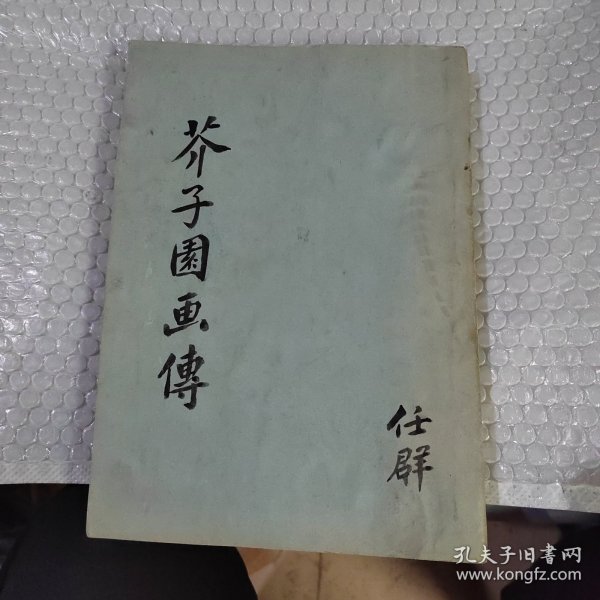 芥子園画傳
任群
孔夫子旧書网
www.kongfz.com